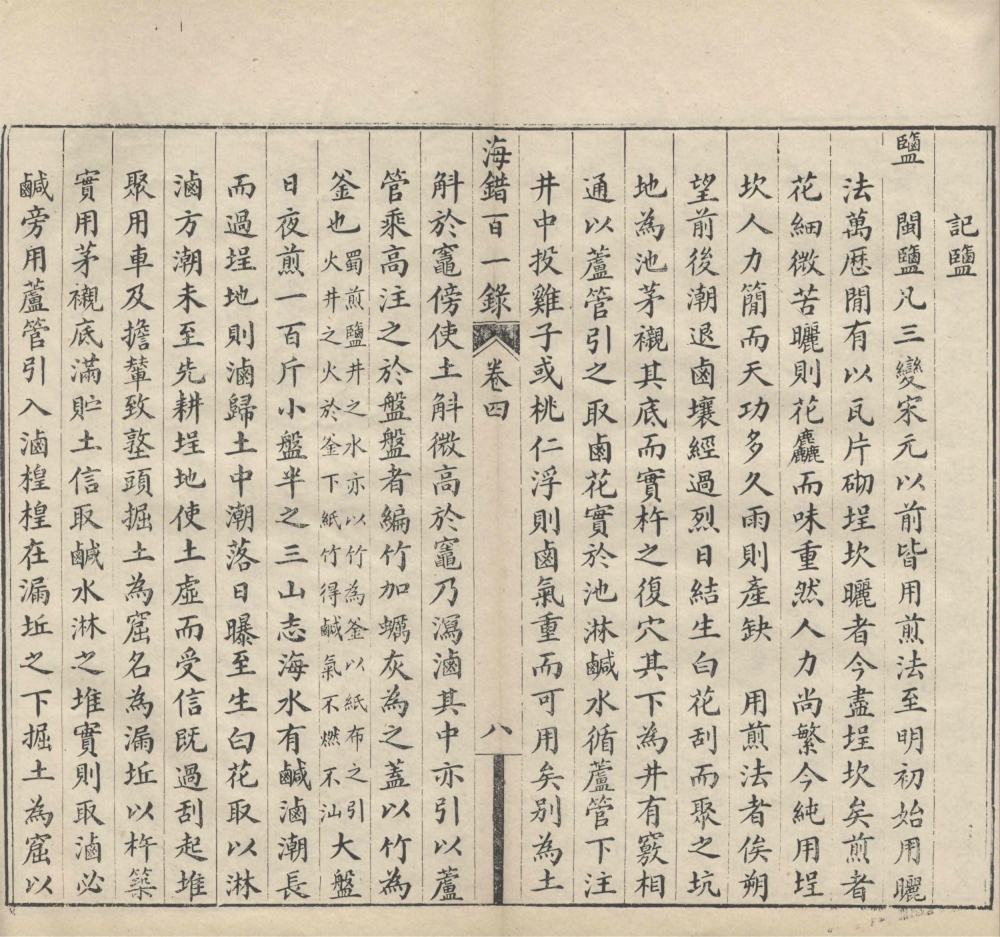 記鹽
鹽　閩鹽凡三變宋元以前皆用煎法至明初始用曬
法萬厯閒有以瓦片砌埕坎曬者今盡埕坎矣煎者
花細微苦曬則花麤而味重然人力尚繁今純用埕
坎人力簡而天功多久雨則產缺　用煎法者俟朔
望前後潮退鹵壤經過烈日結生白花刮而聚之坑
地為池茅襯其底而實杵之復穴其下為井有竅相
通以蘆管引之取鹵花實於池淋鹹水循蘆管下注
井中投雞子或桃仁浮則鹵氣重而可用矣別為土
海錯百一錄　卷四　八
斛於竈傍使土斛微高於竈乃瀉滷其中亦引以蘆
管乘高注之於盤盤者編竹加蠣灰為之蓋以竹為
釜也蜀煎鹽井之水亦以竹為釜以紙布之引火井之火於釜下紙竹得鹹氣不燃不汕大盤
日夜煎一百斤小盤半之三山志海水有鹹滷潮長
而過埕地則滷歸土中潮落日曝至生白花取以淋
滷方潮未至先耕埕地使土虛而受信既過刮起堆
聚用車及擔輦致墪頭掘土為窟名為漏坵以杵築
實用茅襯底滿貯土信取鹹水淋之堆實則取滷必
鹹旁用蘆管引入滷楻楻在漏坵之下掘土為窟以